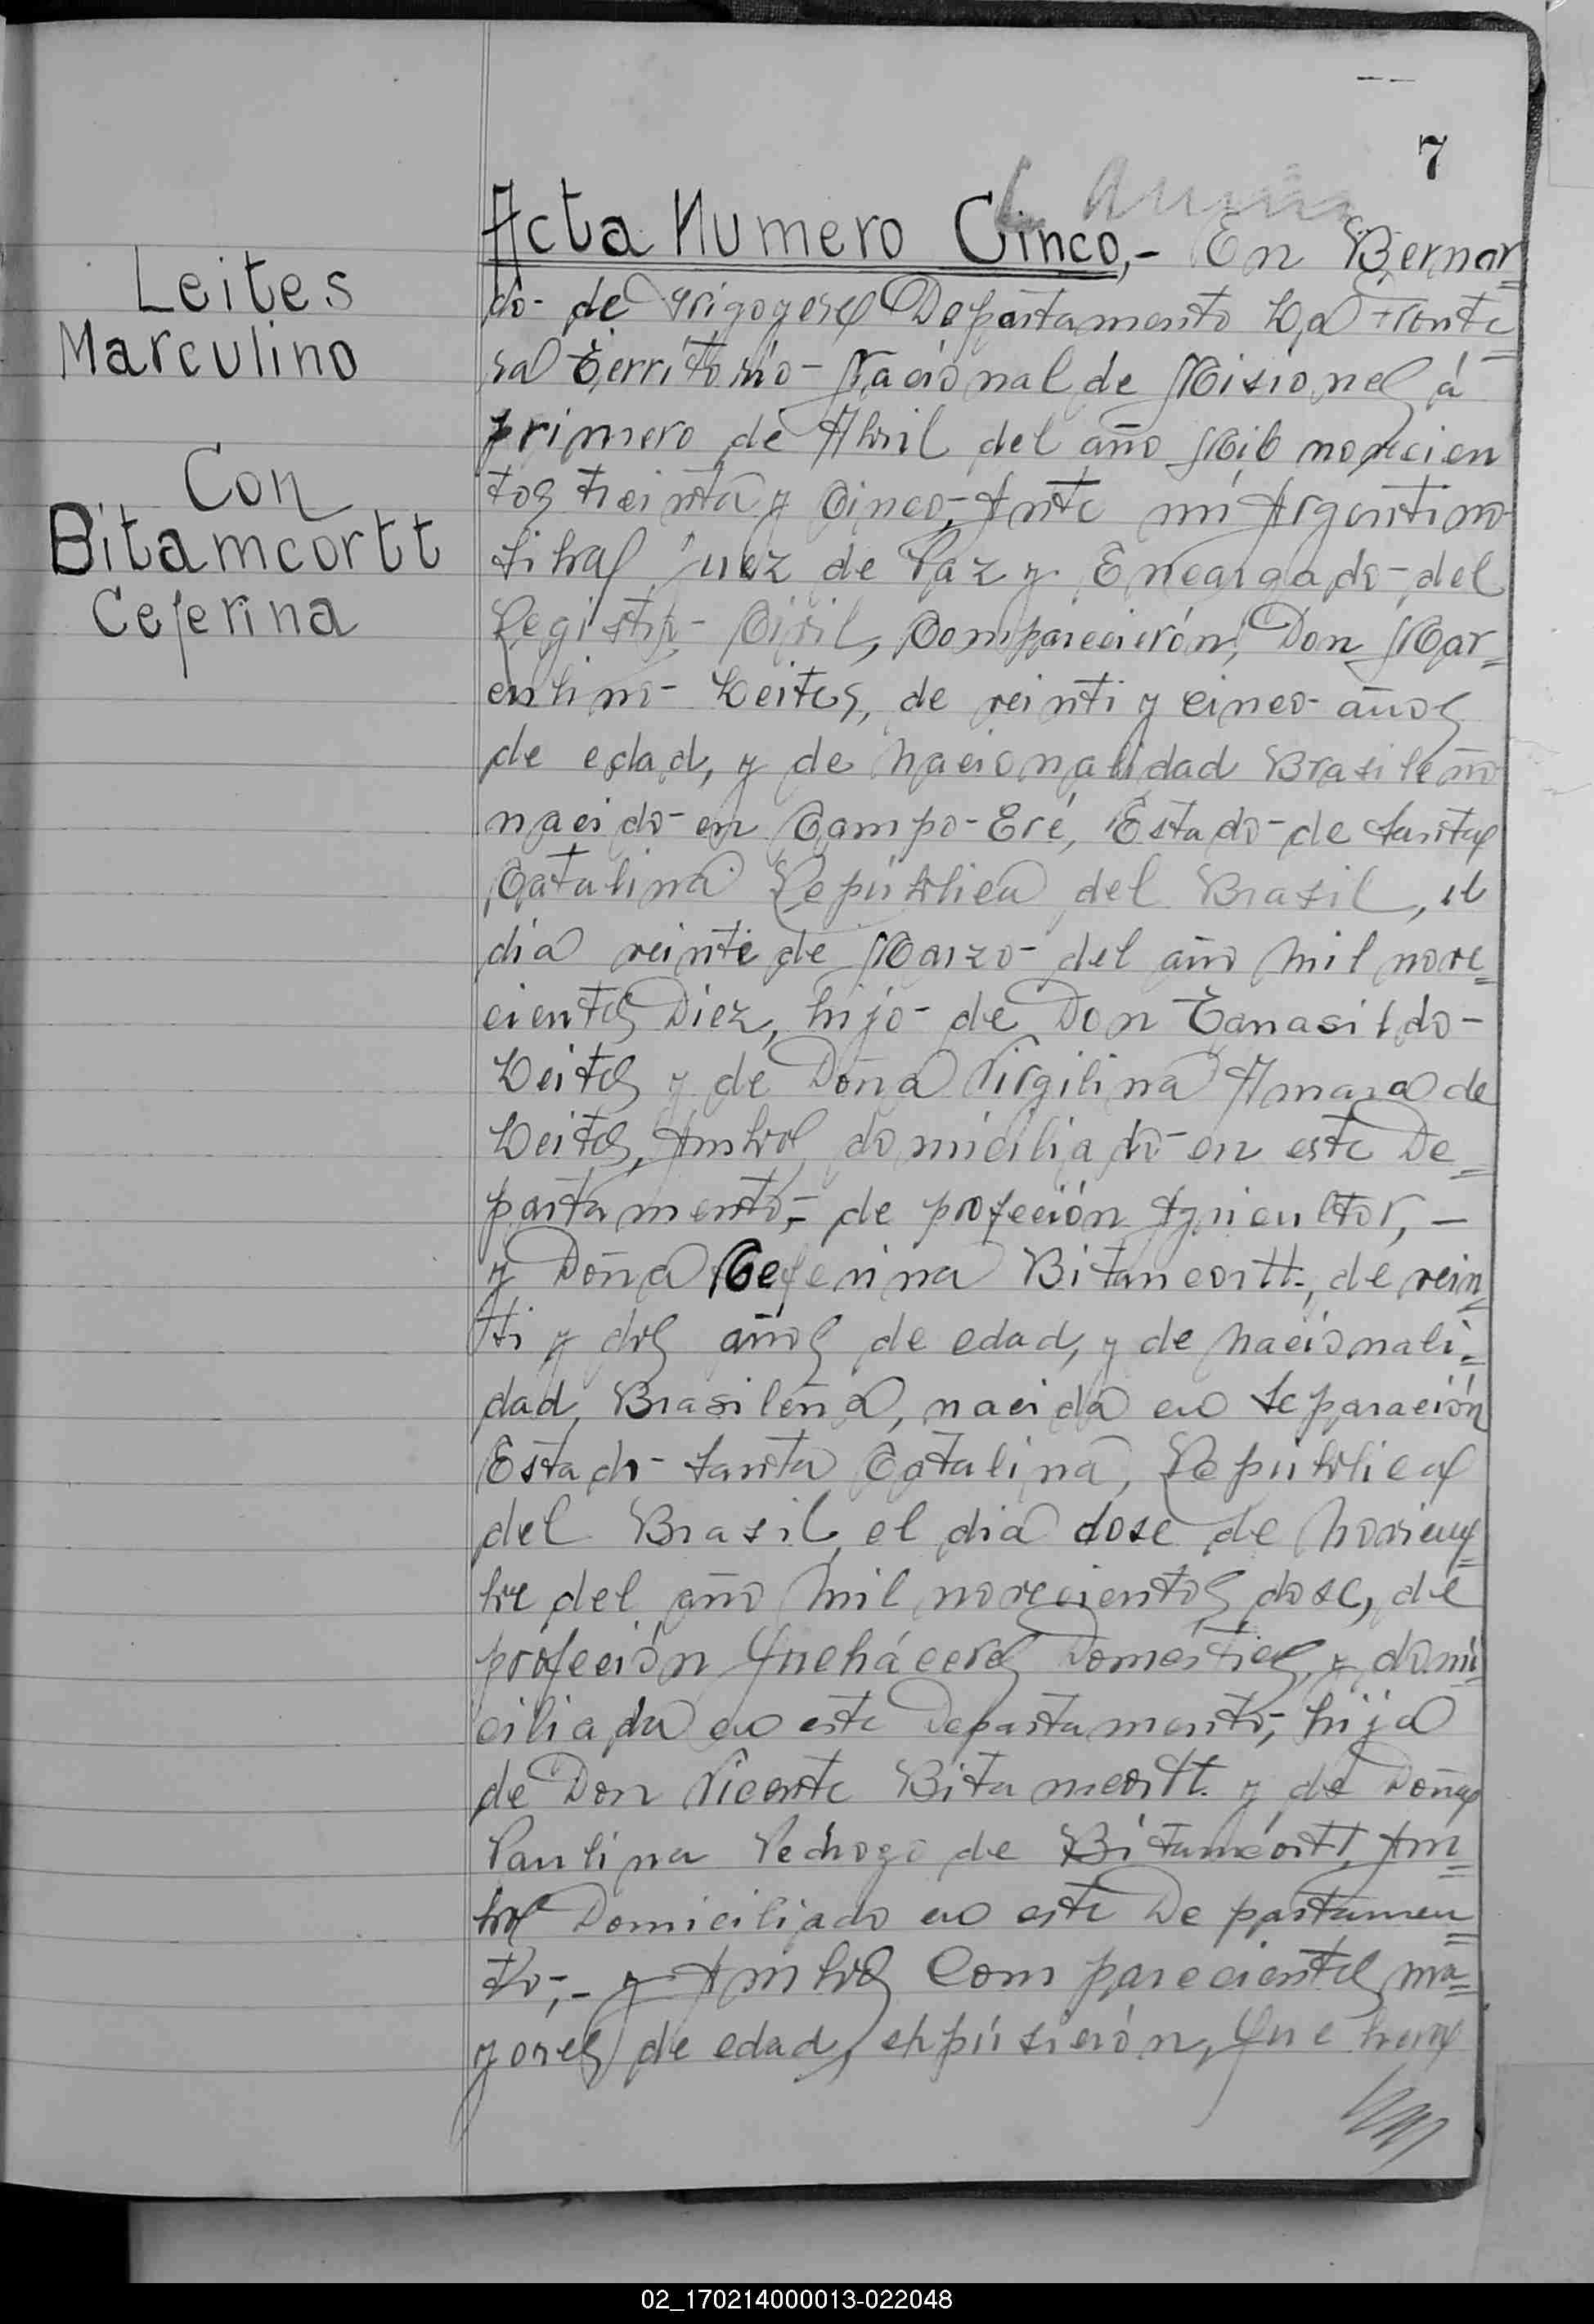 7
Leites
Marculino
Con
Bitamcortt
Ceferina
Acta Numero Cinco,- En Bernar=
do de Irigoyen Departamento La Fronte=
ra Territorio Nacional de Misiones á
primero de Abril del año Mil novecien
tos treinta y Cinco,- Ante mi Argentino
Juez de Paz y Encargado del
Registro Civil, Comparecierón, Don Mar=
culino Leites, de veinti y cinco años
de edad, y de nacionalidad Brasileño
nacido en Campo-Eré, Estado de Santa
Catalina República del Brasil, el
dia veinte de Marzo del año mil nove=
cientos Diez, hijo de Don Tanasildo
Leites y de Doña Virgilina Amara de
Leites, Ambos domiciliado en este De=
partamento,- de profeción Agricultor,-
y Doña Ceferina Bitancortt, de vein
ti y dos años de edad, y de nacionali=
dad, Brasileña, nacida en Separación
Estado Santa Catalina, República
del Brasil, el dia dose de Noviem=
bre del año mil novecientos dose, de
profeción Queháceres Domésticos, y domi
ciliada en este Departamento,- hija
de Don Vicente Bitamcortt. y de Doña
Paulina de Bitamcortt, Am=
bos Domiciliado en este Departamen=
to,- y Ambos Comparecientes ma=
yores de edad, expúsierón, Que
02_170214000013-022048